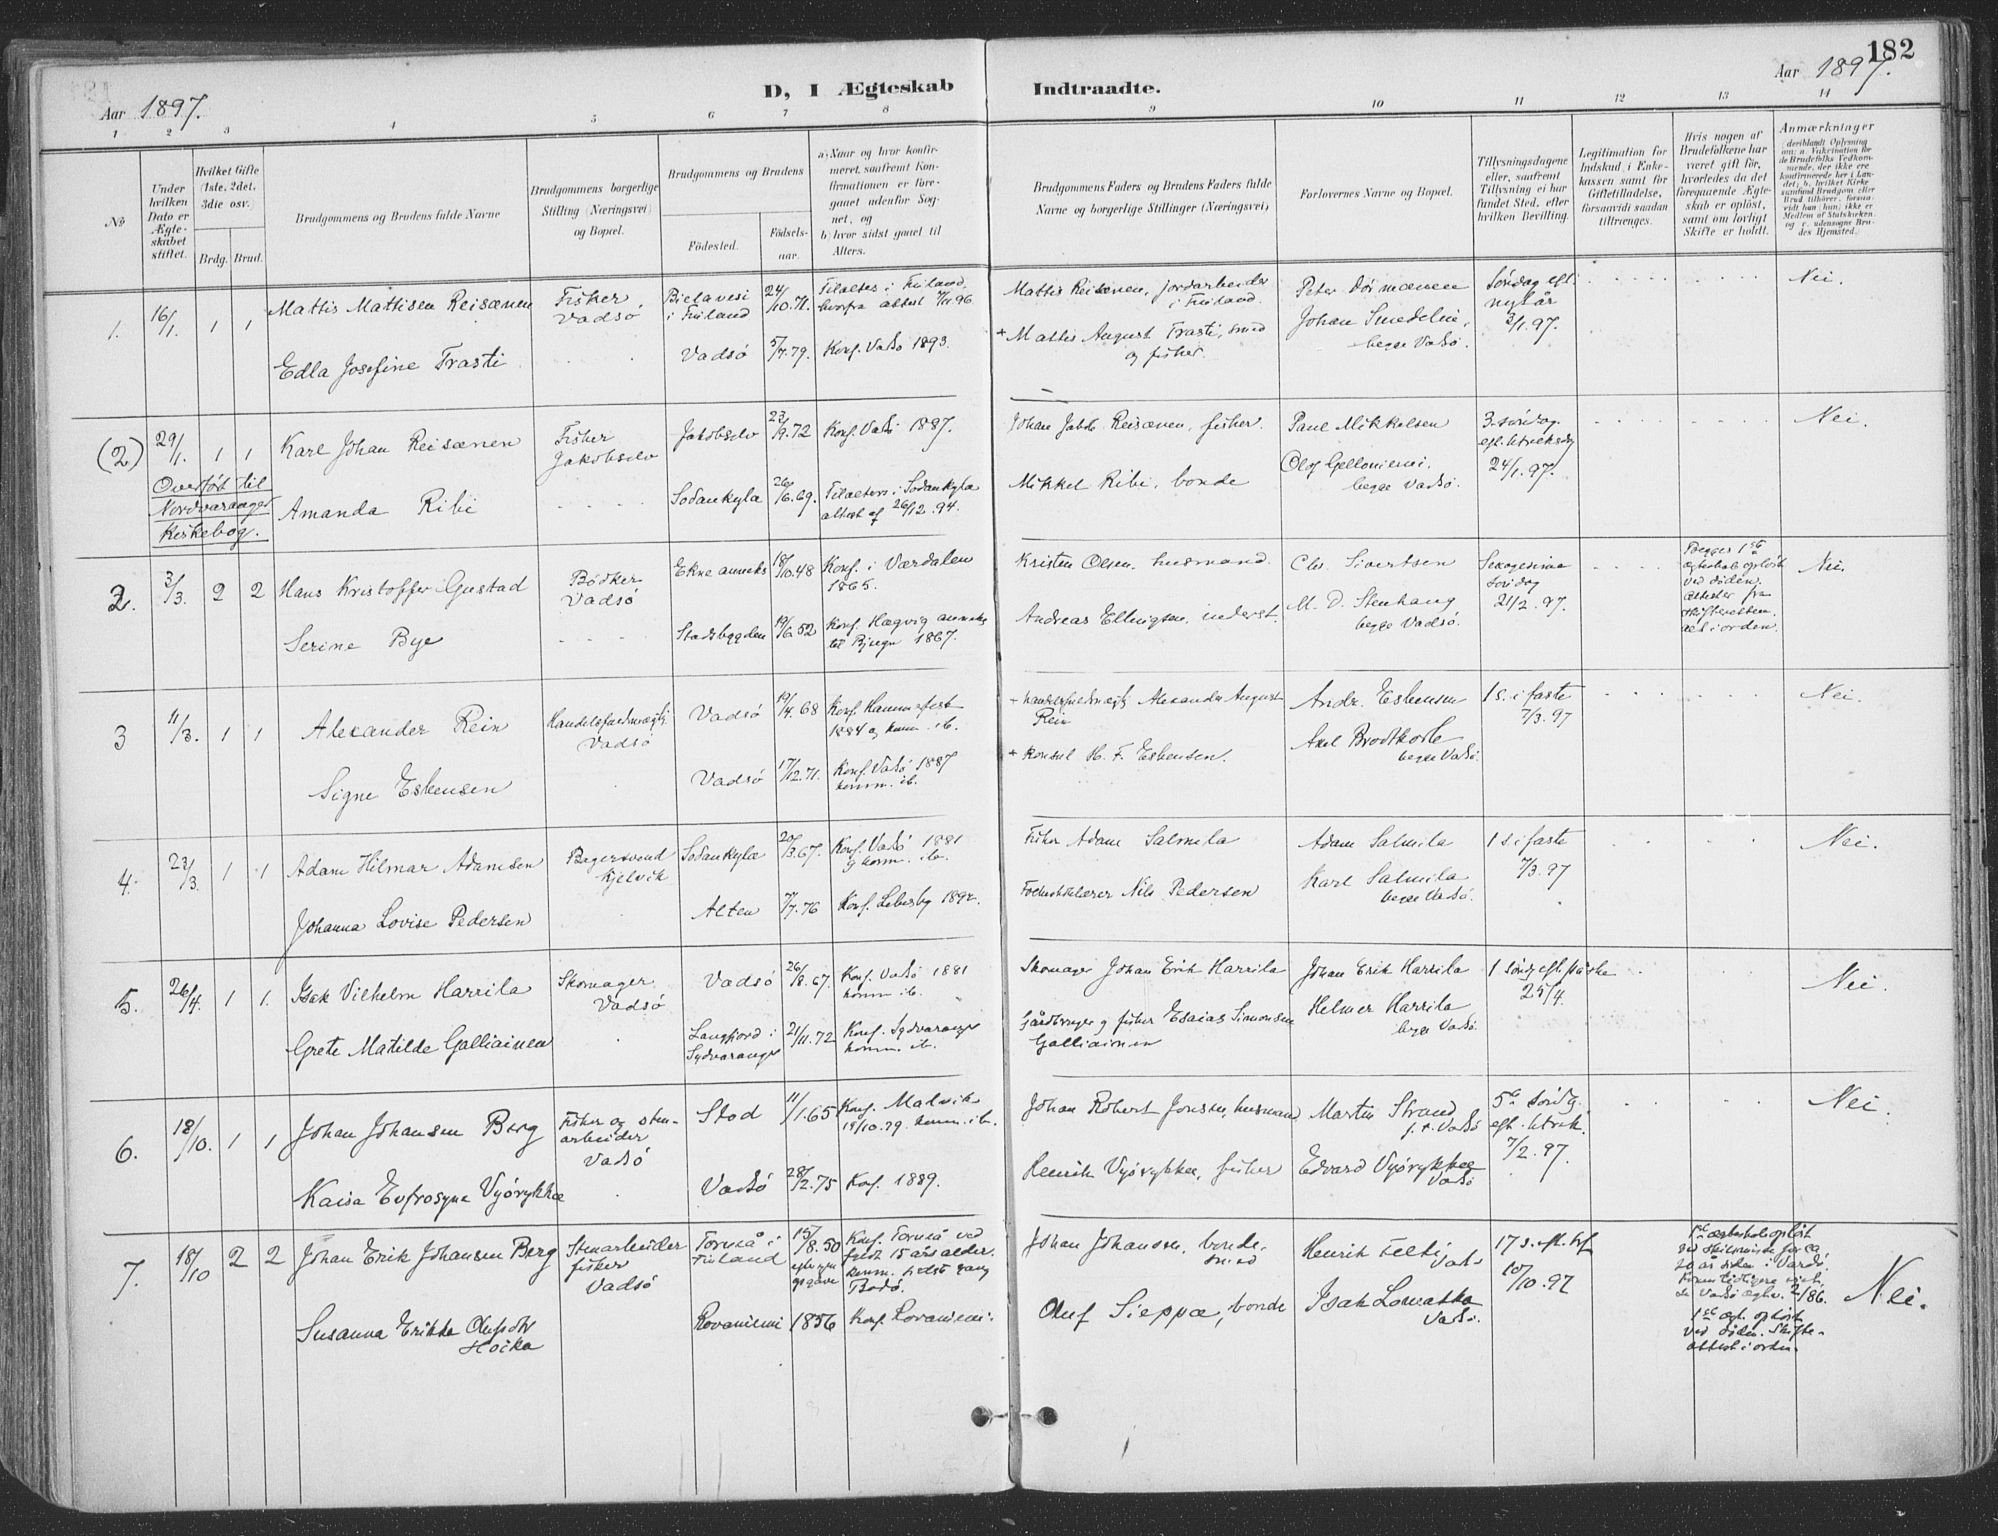 182
Aar 1897.
D, I Ægteskab Indtraadte.
Aar 1897.
1 2 3 4 5 6 7 8 9 10 11 12 13 14
No
Under hvilken Dato er Ægteskabet stiftet.
Hvilket Gifte (1ste, 2det, 3die osv.)
Brdg. Brud.
Brudgommens og Brudens fulde Navne
Brudgommens borgerlige Stilling (Næringsvei) og Bopæl.
Brudgommens og Brudens
Fødested.
Fødselsaar.
a) Naar og hvor konfirmeret, saafremt Konfirmationen er foregaaet udenfor Sognet, og
b) hvor sidst gaaet til Alters.
Brudgommens Faders og Brudens Faders fulde Navne og borgerlige Stillinger (Næringsvei)
Forlovernes Navne og Bopæl.
Tillysningsdagene eller, saafremt Tillysning ei har fundet Sted, efter hvilken Bevilling.
Legitimation for Indskud i Enkekassen samt for Giftetilladelse, forsaavidt saadan tiltrænges.
Hvis nogen af Brudefolkene har været gift før, hvorledes da det foregaaende Ægteskab er opløst, samt om lovligt Skifte er holdt.
Anmærkninger (deriblandt Oplysning om: a. Vakcination for de Brudefolks Vedkommende, der ikke ere konfirmerede her i Landet; b. hvilket Kirkesamfund Brudgom eller Brud tilhører, forsaavidt han (hun) ikke er Medlem af Statskirken, og c. udensogns Brudes Hjemsted.
1. 16/1. 1 1 Mattis Mattisen Reisænen Fisker, Vadsø i Finland 24/10.71. Mattis Reisænen, jordarbeider i Finland. Peter Søndag eft. nytår 3/1.97. Nei.
Edla Josefine Trasti Vadsø 5/7.79. Konf. Vadsø 1893. + Mattis August Trasti, smed og fisker. Johan begge Vadsø.
(2) 29/1. 1 1 Karl Johan Reisænen Fisker Jakobselv Jakobselv 23/9.72 Konf. Vadsø 1887. Johan Jakob Reisænen, fisker. Paul Mikkelsen 3. søndag 24/1.97. Nei.
Overført til Nordvaranger Kirkebog.
Amanda Ribi Sodankylæ 26/6.69. 26/12.94. Mikkel Ribi, bonde Olof begge Vadsø.
2. 3/3. 2 2 Hans Kristoffer Gustad Bødker Vadsø Ekne anneks 18/10.48 Konf. i Værdalen 1865. Kristen Olsen, husmand. Chr. Sivertsen Sexagesima søndag 21/2.97. Begges 1ste ægteskab opløst ved døden. Attester fra skifteretten i orden. Nei.
Serine Bye Stadsbygden 19/6.52 1867. Andreas Ellingsen, inderst. M. D. Stenhaug begge Vadsø.
3 11/3. 1 1 Alexander Rein Handelsfuldmægtig Vadsø Vadsø 19/4.68 Konf. Hammerfest 1884 og komm. ib. + handelsfuldmægtig Alexander August Rein Andr. Esbensen 1 s. i faste 7/3.97 Nei.
Signe Esbensen Vadsø 17/12.71. Konf. Vadsø 1887 komm. ib. + konsul H. F. Esbensen. Axel Brodtkorb begge Vadsø.
4. 23/3. 1 1 Adam Hilmar Adamsen Bagersvend Kjelvik Sodankylæ 20/3.67. Konf. Vadsø 1881 og komm. ib. Fisker Adam Salmila Adam Salmila 1 s. i faste 7/3.97 Nei.
Johanna Lovise Pedersen Alten 7/7.76 Konf. Lebesby 1892. Nils Pedersen Karl Salmila begge Vadsø.
5. 26/4. 1 1. Isak Vilhelm Harrila Skomager Vadsø Vadsø 26/8.67. Konf. Vadsø 1881 komm. ib. Skomager Johan Erik Harrila Johan Erik Harrila 1 sønd. eft. påske 25/4. Nei.
Grete Matilde Galliainen Langfjord i Sydvaranger 21/11.72 Konf. Sydvaranger komm. ib. Gårdbruger og fisker Esaias Simonsen Galliainen Helmer Harrila begge Vadsø
6. 18/10. 1 1 Johan Johansen Berg Fisker og stenarbeider Vadsø Stod 11/1.65 Konf. Malvik 19/10.79. komm. ib. Johan Robert Jonsen, husmand Martin Strand Vadsø 5te sønd. 7/2.97. Nei.
Kaisa Eufrosyne Vyörykkæ Vadsø 28/2.75 Konf. 1889. Henrik Vyörykkæ, fisker Edvard Vyörykkæ Vadsø
7. 18/10 2 2 Johan Erik Johansen Berg Stenarbeider fisker Vadsø Torneå i Finland 15/8.50 egen opgave Konf. Torneå ved 15 års alder. komm. sidste gang Bodø. Johan Johansen, bonde, smed Henrik Felti Vadsø 17 s. 10/10.97 1ste ægteskab opløst ved skilsmisse for ca. 20 år siden i Vardø. Nei.
Susanna Erikka Olufsdtr Hoikka Rovaniemi 1856 Konf. Rovaniemi. Oluf Sieppæ, bonde Isak Vadsø. 1ste ægt. opløst ved døden. Skifteattest i orden.